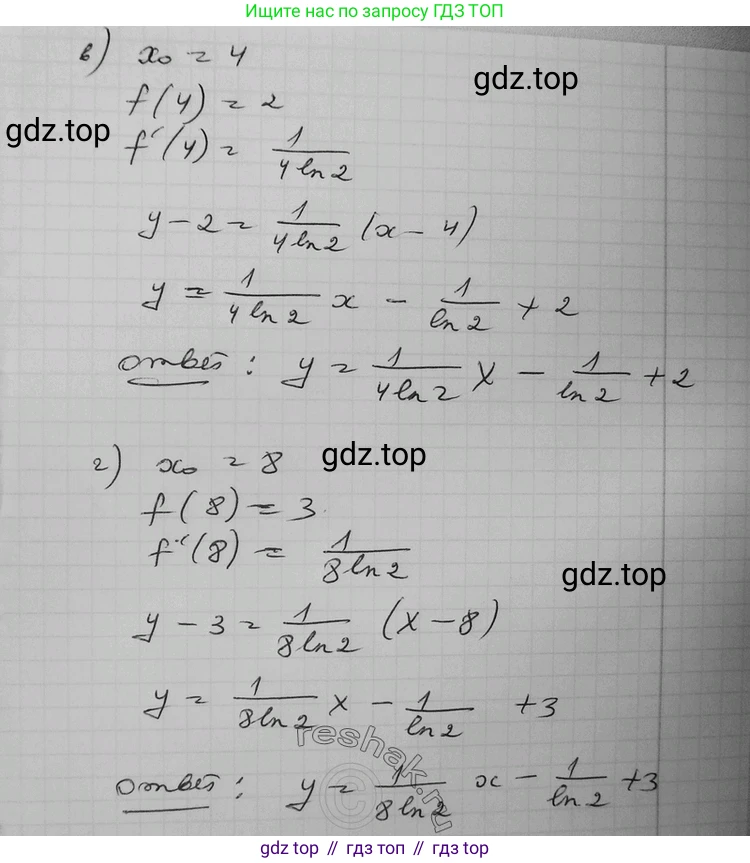 Ищите нас по запросу ГДЗ ТОП
в) x₀ = 4
gdz.top
f(4) = 2
gdz.top
f'(4) = 1/(4 ln 2)
y - 2 = 1/(4 ln 2) (x - 4)
y = 1/(4 ln 2) x - 1/(ln 2) + 2
Ответ: y = 1/(4 ln 2) x - 1/(ln 2) + 2
г) x₀ = 8
gdz.top
f(8) = 3
f'(8) = 1/(8 ln 2)
gdz.top
y - 3 = 1/(8 ln 2) (x - 8)
y = 1/(8 ln 2) x - 1/(ln 2) + 3
reshak.ru
Ответ: y = 1/(8 ln 2) x - 1/(ln 2) + 3
gdz.top // гдз топ // gdz.top